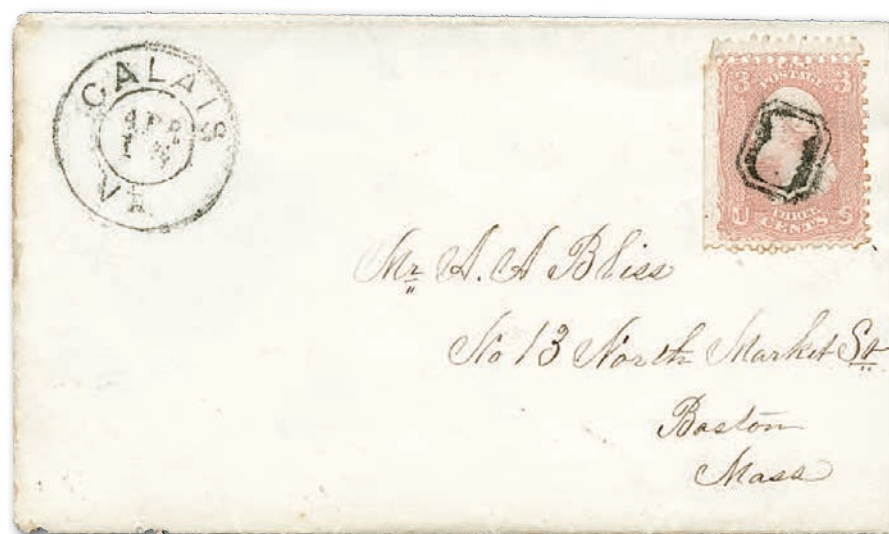 CALAIS
APR
VT
3 U.S. 3
POSTAGE
U THREE S
CENTS
Mr A. A Bliss
No 13 North Market St
Boston
Mass